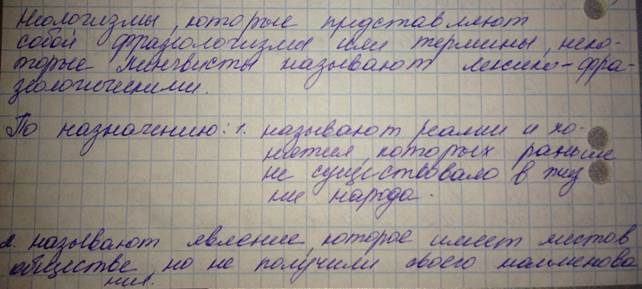 Неологизмы, которые представляют
собой фразеологизмы или термины, неко-
торые лингвисты называют лексико-фра-
зеологическими.
По назначению: 1. называют реалии и по-
нятия, которых раньше
не существовало в жиз
ни народа.
2. называют явление, которое имеет место в
обществе, но не получили своего наименова
ния.